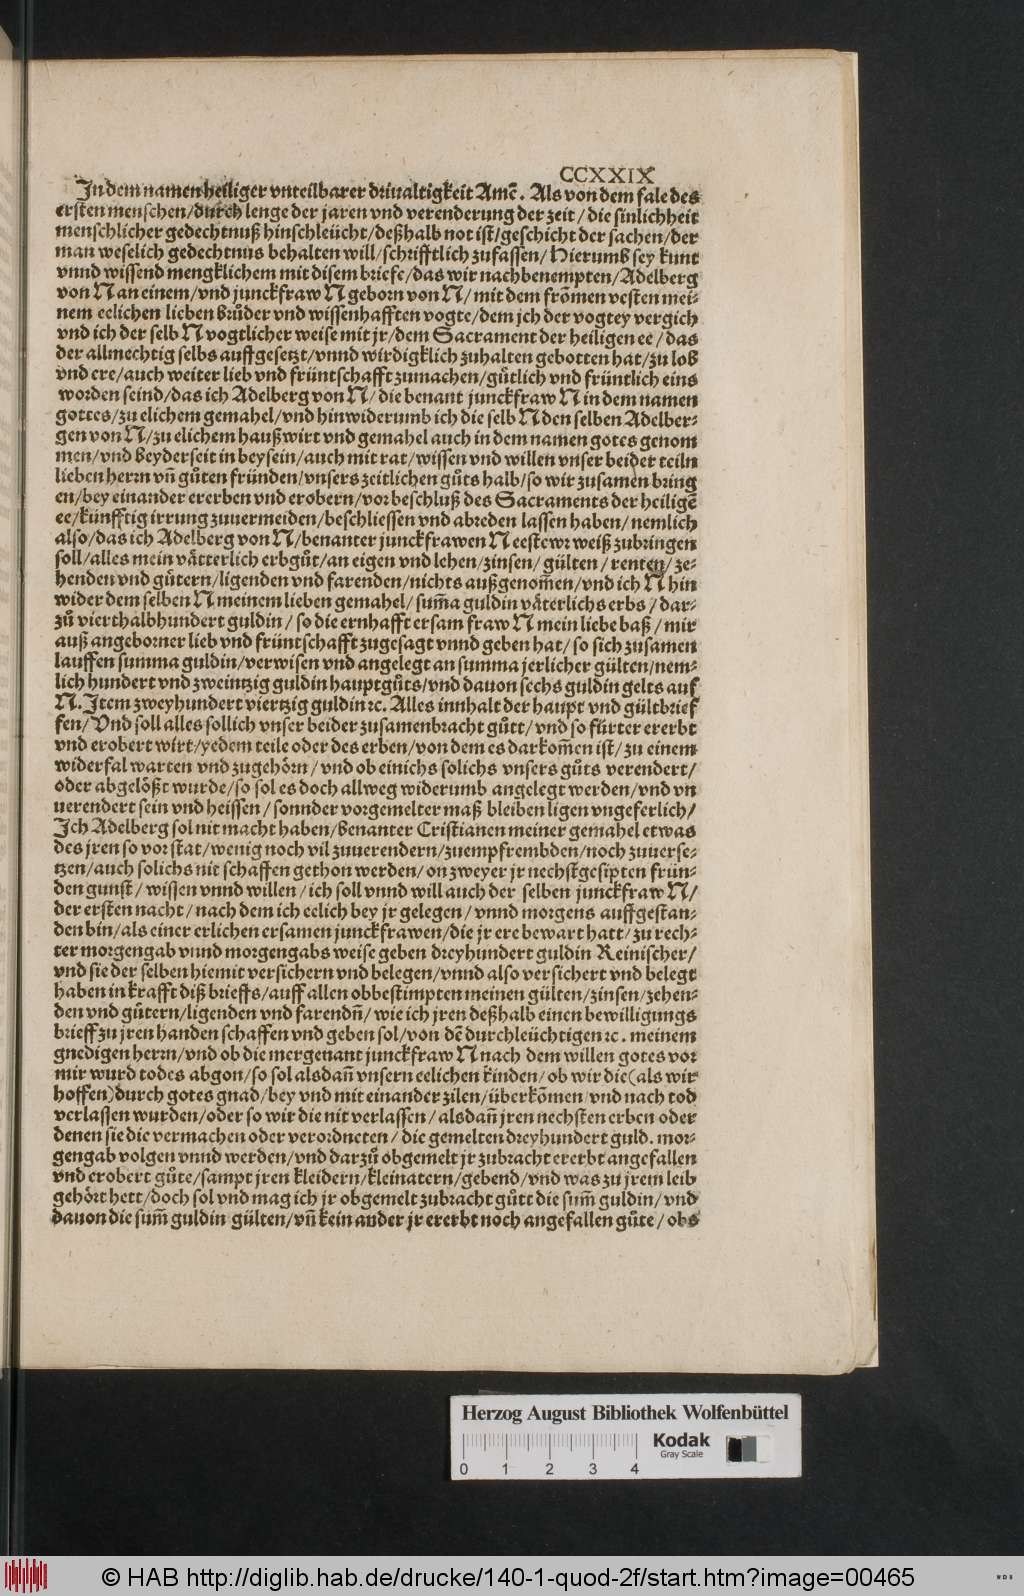 CCXXIX
In dem namen heiliger vnteilbarer driualtigkeit Amē. Als von dem fale des
ersten menschen/durch lenge der jaren vnd verenderung der zeit/die sinlichheit
menschlicher gedechtnuß hinschleücht/deßhalb not ist/geschicht der sachen/der
man weselich gedechtnus behalten will/schrifftlich zufassen/Hierumb sey kunt
vnnd wissend mengklichem mit disem briefe/das wir nachbenempten/Adelberg
von N an einem/vnd junckfraw N geborn von N/mit dem frōmen vesten mei-
nem eelichen lieben brůder vnd wissenhafften vogte/dem jch der vogtey vergich
vnd ich der selb N vogtlicher weise mit jr/dem Sacrament der heiligen ee/das
der allmechtig selbs auffgesetzt/vnnd wirdigklich zuhalten gebotten hat/zu lob
vnd ere/auch weiter lieb vnd früntschafft zumachen/gůtlich vnd früntlich eins
worden seind/das ich Adelberg von N/die benant junckfraw N in dem namen
gottes/zu elichem gemahel/vnd hinwiderumb ich die selb N den selben Adelber-
gen von N/zu elichem haußwirt vnd gemahel auch in dem namen gotes genom
men/vnd beyderseit in beysein/auch mit rat/wissen vnd willen vnser beider teiln
lieben herrn vn̄ gůten fründen/vnsers zeitlichen gůts halb/so wir zusamen bring
en/bey einander ererben vnd erobern/vor beschluß des Sacraments der heiligē
ee/künfftig irrung zuuermeiden/beschliessen vnd abreden lassen haben/nemlich
also/das ich Adelberg von N/benanter junckfrawen N eestewr weiß zubringen
soll/alles mein vätterlich erbgůt/an eigen vnd lehen/zinsen/gülten/renten/ze-
henden vnd gůtern/ligenden vnd farenden/nichts außgenom̄en/vnd ich N hin
wider dem selben N meinem lieben gemahel/sum̄a guldin väterlichs erbs/dar-
zů vierthalbhundert guldin/so die ernhafft ersam fraw N mein liebe baß/mir
auß angeborner lieb vnd früntschafft zugesagt vnnd geben hat/so sich zusamen
lauffen summa guldin/verwisen vnd angelegt an summa jerlicher gülten/nem-
lich hundert vnd zweintzig guldin hauptgůts/vnd dauon sechs guldin gelts auf
N. Item zweyhundert viertzig guldin ꝛc. Alles innhalt der haupt vnd gültbrief
fen/Vnd soll alles sollich vnser beider zusamenbracht gůtt/vnd so fürter ererbt
vnd erobert wirt/yedem teile oder des erben/von dem es darkom̄en ist/zu einem
widerfal warten vnd zugehörn/vnd ob einichs solichs vnsers gůts verendert/
oder abgelößt wurde/so sol es doch allweg widerumb angelegt werden/vnd vn
uerendert sein vnd heissen/sonnder vorgemelter maß bleiben ligen vngeferlich/
Ich Adelberg sol nit macht haben/benanter Cristianen meiner gemahel etwas
des jren so vor stat/wenig noch vil zuuerendern/zuempfrembden/noch zuuerse-
tzen/auch solichs nit schaffen gethon werden/on zweyer jr nechstgesipten frün-
den gunst/wissen vnnd willen/ich soll vnnd will auch der selben junckfraw N/
der ersten nacht/nach dem ich eelich bey jr gelegen/vnnd morgens auffgestan-
den bin/als einer erlichen ersamen junckfrawen/die jr ere bewart hatt/zu rech-
ter morgengab vnnd morgengabs weise geben dreyhundert guldin Reinischer/
vnd sie der selben hiemit versichern vnd belegen/vnnd also versichert vnd belegt
haben in krafft diß brieffs/auff allen obbestimpten meinen gülten/zinsen/zehen-
den vnd gůtern/ligenden vnd farendn̄/wie ich jren deßhalb einen bewilligungs
brieff zu jren handen schaffen vnd geben sol/von dē durchleüchtigen ꝛc. meinem
gnedigen herrn/vnd ob die mergenant junckfraw N nach dem willen gotes vor
mir wurd todes abgon/so sol alsdan̄ vnsern eelichen kinden/ob wir die(als wir
hoffen)durch gotes gnad/bey vnd mit einander zilen/überkōmen vnd nach tod
verlassen wurden/oder so wir die nit verlassen/alsdan̄ jren nechsten erben oder
denen sie die vermachen oder verordneten/die gemelten dreyhundert guld. mor-
gengab volgen vnnd werden/vnd darzů obgemelt jr zubracht ererbt angefallen
vnd erobert gůte/sampt jren kleidern/kleinatern/gebend/vnd was zu jrem leib
gehört hett/doch sol vnd mag ich jr obgemelt zubracht gůtt die sum̄ guldin/vnd
dauon die sum̄ guldin gülten/vn̄ kein ander jr ererbt noch angefallen gůte/obs
Herzog August Bibliothek Wolfenbüttel
0 1 2 3 4
Kodak
Gray Scale
© HAB http://diglib.hab.de/drucke/140-1-quod-2f/start.htm?image=00465